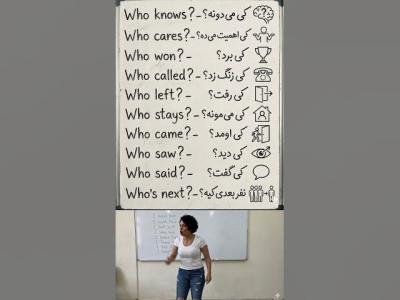 Who knows? - کی می‌دونه؟
Who cares? - کی اهمیت می‌ده؟
Who won? - کی برد؟
Who called? - کی زنگ زد؟
Who left? - کی رفت؟
Who stays? - کی می‌مونه؟
Who came? - کی اومد؟
Who saw? - کی دید؟
Who said? - کی گفت؟
Who's next? - نفر بعدی کیه؟